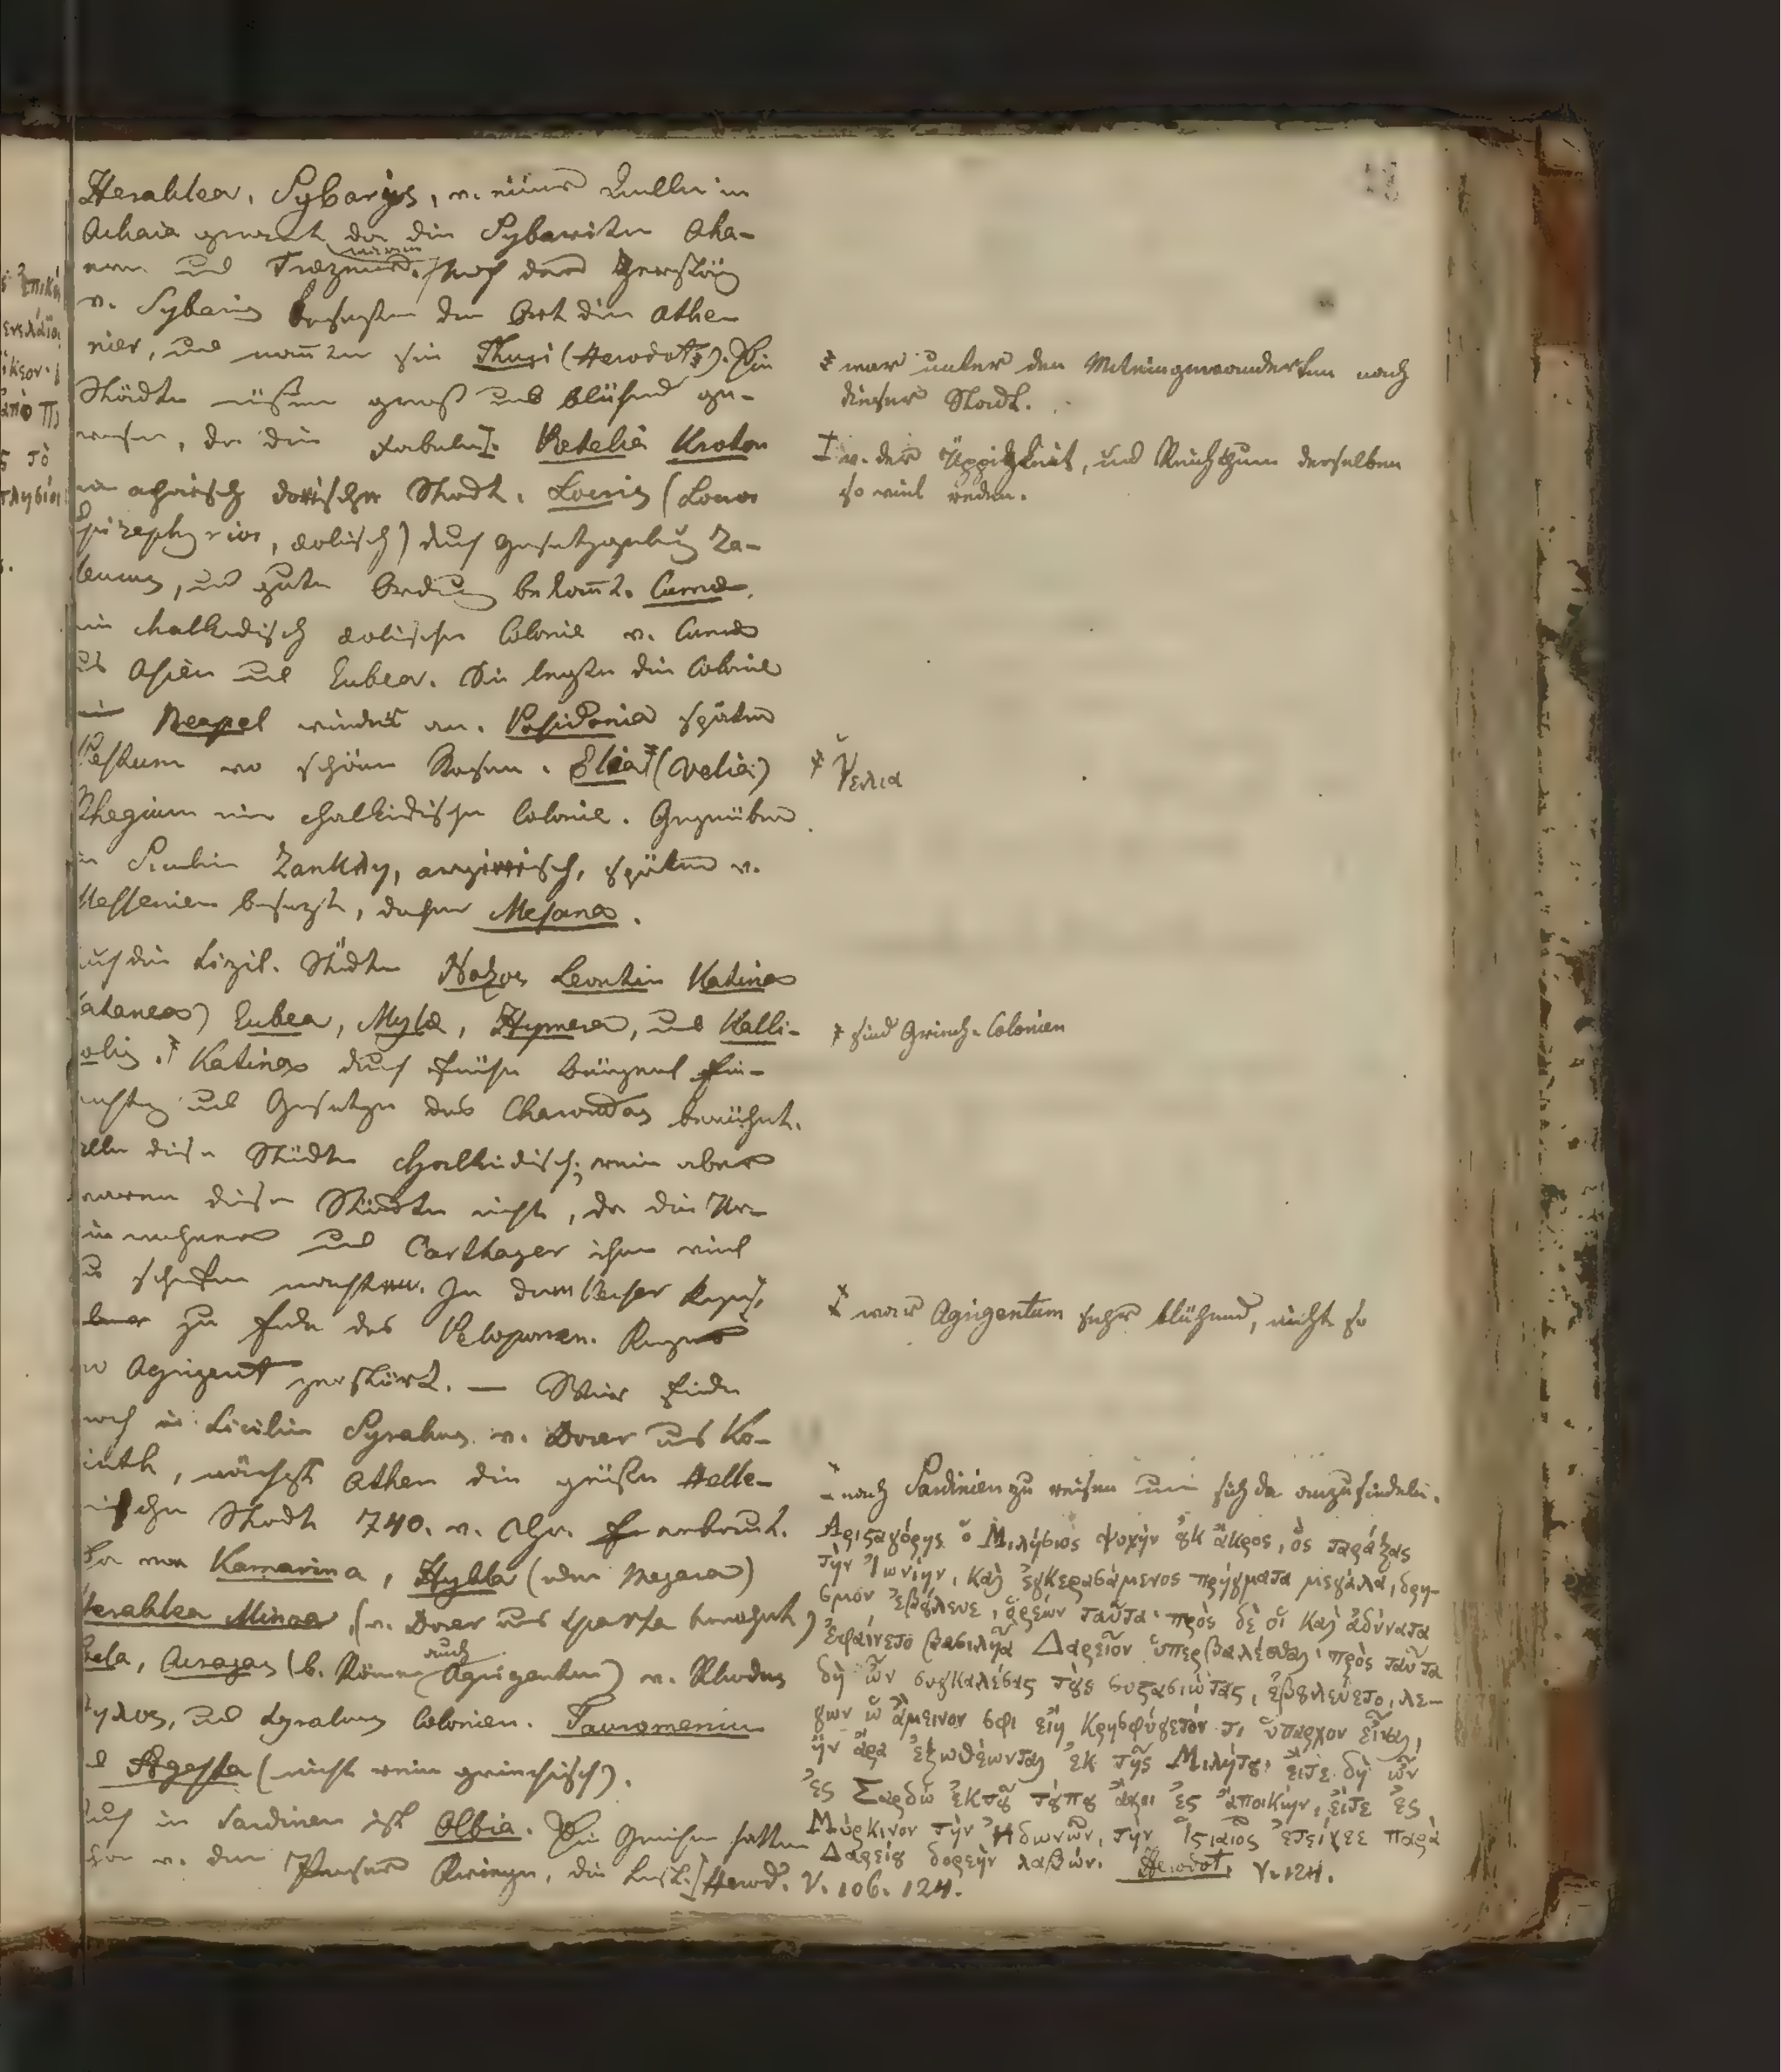 Heraklea, Sybaris, v. einer Quelle in
Achaia genannt da die Sybariten Achä-
waren
und Trœzener. Nach der Zerstörg
v. Sybaris besetzten den Ort die Athe-
nier, und nanten sie Thuri (Herodot‡). Die
Städte müßen groß und blühend ge-
wesen, da die Fabeln‡. Petelia Kroton
achäisch dorischer Stadt. Locris (Locroi
Epizephyrioi, æolisch) durch Gesetzgebung Za-
leucus, und gute Ordnung bekant. Cumæ.
chalkidisch æolische Colonie v. Cumæ
aus Asien und Eubea. Sie legten die Colonie
Neapel wieder an. Posidonia später
Pestum wo schöne Rosen. Elea‡ (Velia)
Rhegium eine chalkidische Colonie. Gegenüber
in Sicilien Zankle, später v.
Messenien besezt, daher Mesana.
Auf die Sizil. Städte Naxos Leontin Katina
(Catanea) Eubea, Mylæ, Hymera, und Kalli-
polis.‡ Katina durch frühe bürgerl Ein-
richtg und Gesetze des Charondas berühmt.
alle diese Städte chalkidisch; rein aber
waren diese Städte nicht, da die Ur-
einwohner und Carthager ihnen viel
zu schaffen machten. In dem
zu Ende des Peloponn. Krieges
Agrigent zerstört. — Wir finden
noch in Sicilien Syrakus v. Dorer aus Ko-
rinth, nächst Athen die größte Helle-
nische Stadt 740. v. Chr. erbaut.
Kamarina, Hybla (oder Megara)
Heraklea Minoa, (v. Dorer aus Sparta bewohnt)
auch
Gela, Acragas (b. Römer Agrigentum) v. Rhodus
und Syrakus Colonien. Tauromenium
Ægesta (nicht rein griechisch).
Auch in Sardinien ist Olbia. Die Griechen hatten
v. den Perser Kriegen, die Lust. Herod. V. 106. 124.
‡ war unter den Miteingewanderten nach
dieser Stadt.
‡ v. der Üppigkeit, und Reichthum derselben
so viel reden.
‡ Ὑελια
‡ sind Griech. Colonien
‡ war Agrigentum sehr blühend, nicht so
nach Sardinien zu reisen um sich da anzusiedeln.
Αριςαγόρης ὁ Μιλήσιος ψυχὴν ȣκ ἄκρος, ὃς ταράξας
τὴν Ἰωνίην, καὶ ἐγκερασάμενος πρήγματα μεγάλα, δρη-
σμὸν ἐβȣλευε, ὁρέων ταῦτα· πρὸς δὲ οἱ καὶ ἀδύνατα
ἐφαίνετο βασιλῆα Δαρεῖον ὑπερβαλέσθαι· πρὸς ταῦτα
δὴ ὦν συγκαλέσας τȣς συςασιώτας, ἐβȣλεύετο, λέ-
γων ὡ ἄμεινον σφι εἴη κρησφύγετόν τι ὑπαρχον εἶναι,
ἢν ἄρα ἐξωθέωνται ἐκ τῆς Μιλήτȣ· εἴτε δὴ ὦν
ἐς Σαρδὼ ἐκ τȣ τόπȣ ἄγοι ἐς ἀποικίην, εἴτε ἐς
Μύρκινον τὴν Ἠδωνῶν, τὴν Ἱςιαῖος ἐτείχεε παρὰ
Δαρείȣ δορεὴν λαβών. Herodot. V. 124.